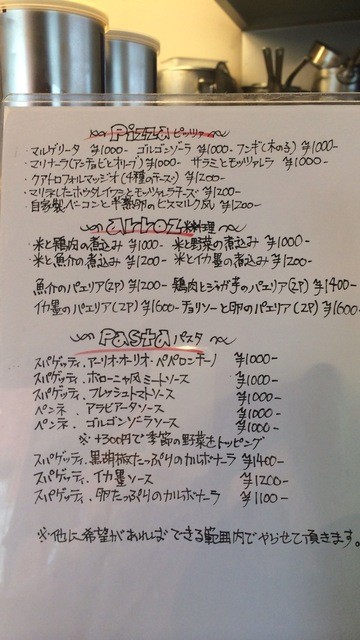 Pizza ピッツァ
・マルゲリータ ¥1000- ゴルゴンゾーラ ¥1000- フンギ(木の子) ¥1000-
・マリナーラ(アンチョビとオリーブ) ¥1000- サラミとモッツァレラ ¥1000-
・クアトロフォルマッジオ(4種のチーズ) ¥1200-
・マリネしたホタルイカとモッツァレラチーズ ¥1200-
・自家製ベーコンと半熟卵のビスマルク風 ¥1200-
arroz 料理
・米と鶏肉の煮込み ¥1000 米と野菜の煮込み ¥1000-
・米と魚介の煮込み ¥1200 米とイカ墨の煮込み ¥1200-
魚介のパエリア(2P) ¥1200- 鶏肉とシャガ芋のパエリア(2P) ¥1400-
イカ墨のパエリア(2P) ¥1600- チョリソーと卵のパエリア(2P) ¥1600-
Pasta パスタ
スパゲッティ.アーリオ・オーリオ・ペペロンチーノ ¥1000-
スパゲッティ.ボローニャ風ミートソース ¥1000-
スパゲッティ.フレッシュトマトソース ¥1000-
ペンネ.アラビアータソース ¥1000-
ペンネ.ゴルゴンゾーラソース ¥1000-
※+300円で季節の野菜をトッピング
スパゲッティ.黒胡椒たっぷりのカルボナーラ ¥1400-
スパゲッティ.イカ墨ソース ¥1200-
スパゲッティ.卵たっぷりのカルボナーラ ¥1100-
※他に希望があればできる範囲内でやらせて頂きます。